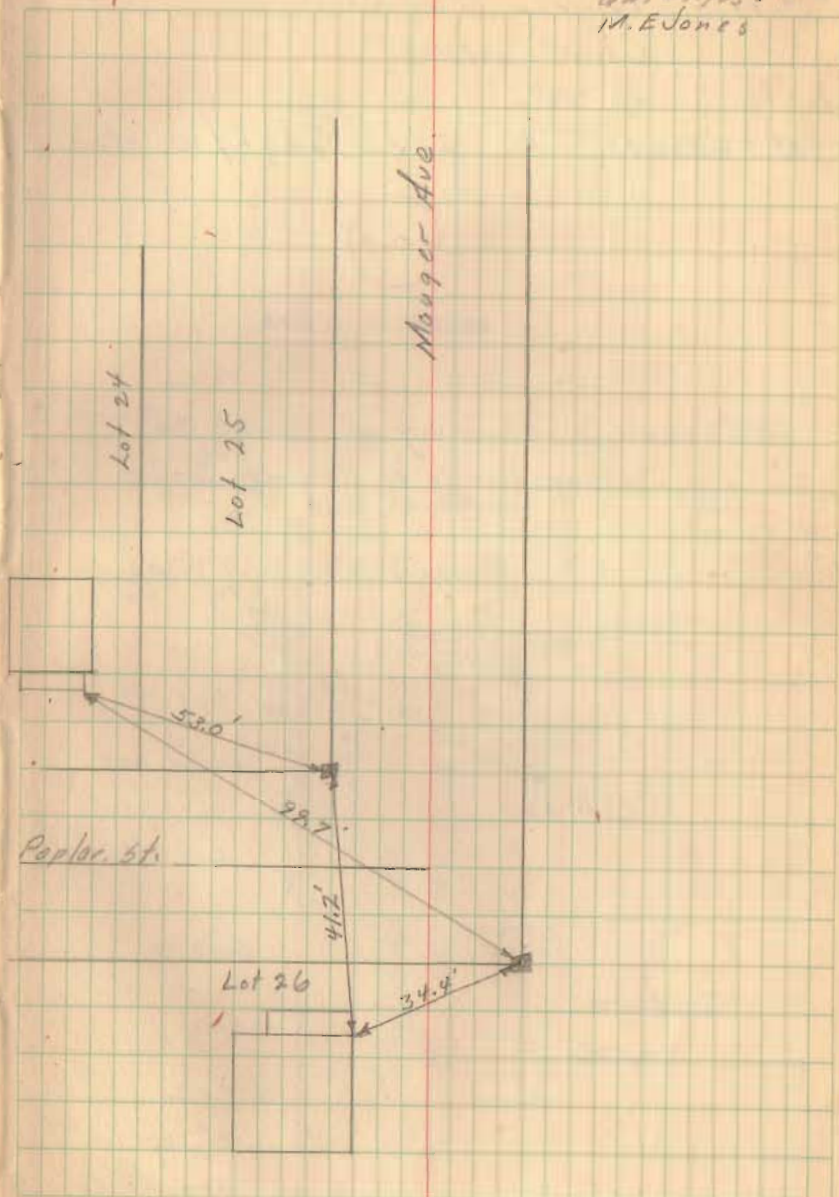 M. E Jones
Mauger Ave.
Lot 24
Lot 25
53.0'
98.7'
Poplar. St.
41.2'
Lot 26
34.4'